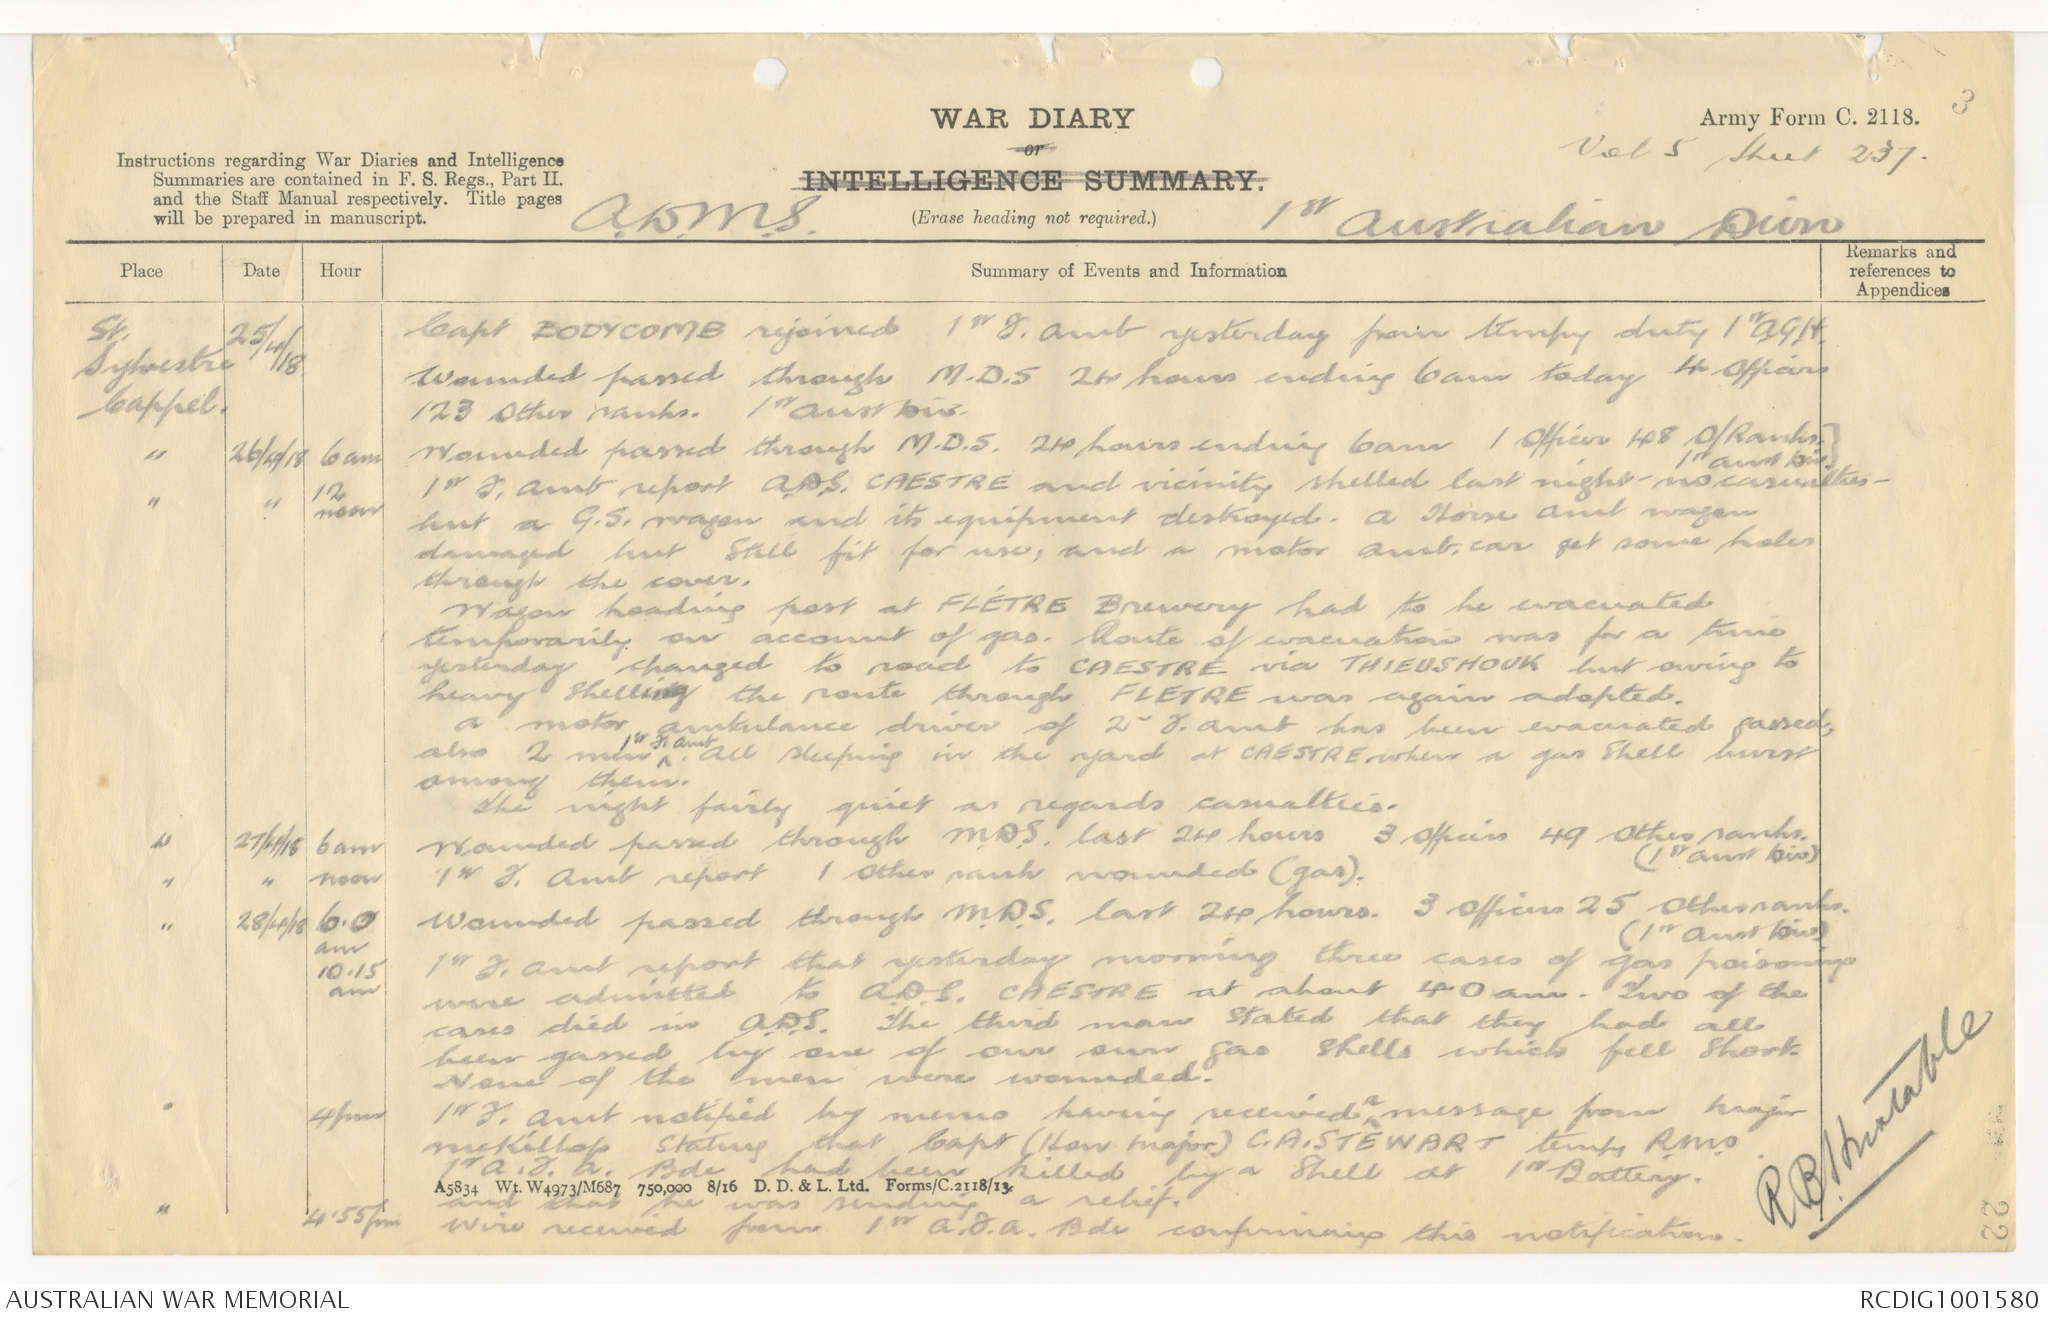 3
WAR DIARY
or
INTELLIGENCE SUMMARY.
(Erase heading not required.)
Army Form C. 2118.
Vol 5 Sheet 237.
Instructions regarding War Diaries and Intelligence
Summaries are contained in F. S. Regs., Part II.
and the Staff Manual respectively. Title pages
will be prepared in manuscript.
A.D.M.S.
1st Australian Divn
Place Date Hour Summary of Events and Information Remarks and references to Appendices
St. Sylvestre Cappel. 25/4/18 Capt BODYCOMB rejoined 1st F. Amb yesterday from tempy duty 1st A.G.H.
Wounded passed through M.D.S 24 hours ending 6am today 4 Officers
123 Other ranks. 1st Aust Div.
" 26/4/18 6am Wounded passed through M.D.S. 24 hours ending 6am 1 Officer 48 O/Ranks.
1st Aust Div.
" " 12 noon 1st F. Amb report A.D.S. CAESTRE and vicinity shelled last night - no casualties -
but a G.S. wagon and its equipment destroyed. A Horse Amb wagon
damaged but still fit for use, and a motor amb. car got some holes
through the cover.
Wagon loading post at FLÉTRE Brewery had to be evacuated
temporarily on account of gas. Route of evacuation was for a time
yesterday changed to road to CAESTRE via THIEUSHOUK but owing to
heavy shelling the route through FLETRE was again adopted.
A motor ambulance driver of 2nd F. Amb has been evacuated gassed,
also 2 men 1st F. Amb. All sleeping in the yard at CAESTRE when a gas shell burst
among them.
The night fairly quiet as regards casualties.
" 27/4/18 6am Wounded passed through M.D.S. last 24 hours 3 Officers 49 Other ranks.
(1st Aust Div)
" " noon 1st F. Amb report 1 Other rank wounded (gas).
" 28/4/18 6.0 am Wounded passed through M.D.S. last 24 hours. 3 Officers 25 Other ranks.
(1st Aust Div)
10.15 am 1st F. Amb report that yesterday morning three cases of gas poisoning
were admitted to A.D.S. CAESTRE at about 4 0 am. Two of the
cases died in A.D.S. The third man stated that they had all
been gassed by one of our own gas shells which fell short.
None of the men were wounded.
" 4pm 1st F. Amb notified by memo having received a message from Major
McKillop stating that Capt (Hon Major) C.A. STEWART tempy R.M.O.
1st A.F.A. Bde had been killed by a shell at 1st Battery.
and that he was sending a relief.
A5834 Wt. W4973/M687 750,000 8/16 D. D. & L. Ltd. Forms/C.2118/13.
" 4.55pm Wire received from 1st A.F.A. Bde confirming this notification.
22
AUSTRALIAN WAR MEMORIAL
RCDIG1001580